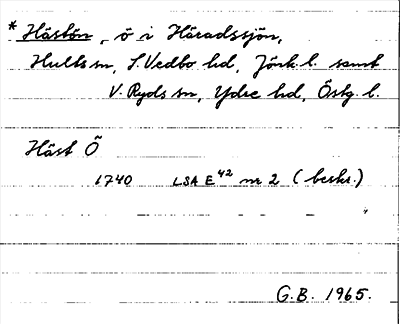 * Hästön, ö i Häradssjön,
Hults sn, S. Vedbo hd, Jönk. l. samt
V. Ryds sn, Ydre hd, Östg. l.
Häst Ö
1740 LSA E42 nr 2 (beskr.)
G.B. 1965.